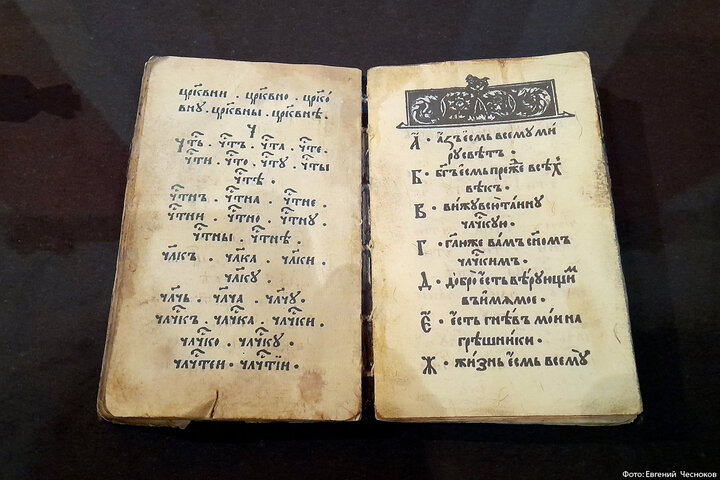 црк҃вни . црк҃вно . црк҃о
вну . црк҃вны . црк҃внѣ .
ч
чт҃ь . чт҃ъ . чт҃а . чт҃е .
чт҃и . чт҃о . чт҃у . чт҃ы
чт҃ѣ .
чт҃нъ . чт҃на . чт҃не .
чт҃ни . чт҃но . чт҃ну .
чт҃ны . чт҃нѣ .
чл҃къ . чл҃ка . чл҃ки .
чл҃ку .
чл҃чь . чл҃ча . чл҃чу .
чл҃чкъ . чл҃чка . чл҃чки .
чл҃чко . чл҃чку
чл҃чтеи . чл҃чтїи .
А · а҆зъ є҆смь всему ми
ру свѣтъ .
Б · бг҃ъ є҆смь преже всѣхъ
вѣкъ .
В · вижу всю таину
чл҃чкую .
Г · гл҃ю же ва́мъ сн҃омъ
чл҃чкимъ .
Д · добро̀ є҆сть вѣрующимъ
въ имѧ моє .
Є · є҆сть гнѣ́въ мои на
грѣ́шники .
Ж · жи́знь є҆смь всемꙋ̀
Фото: Евгений Чесноков